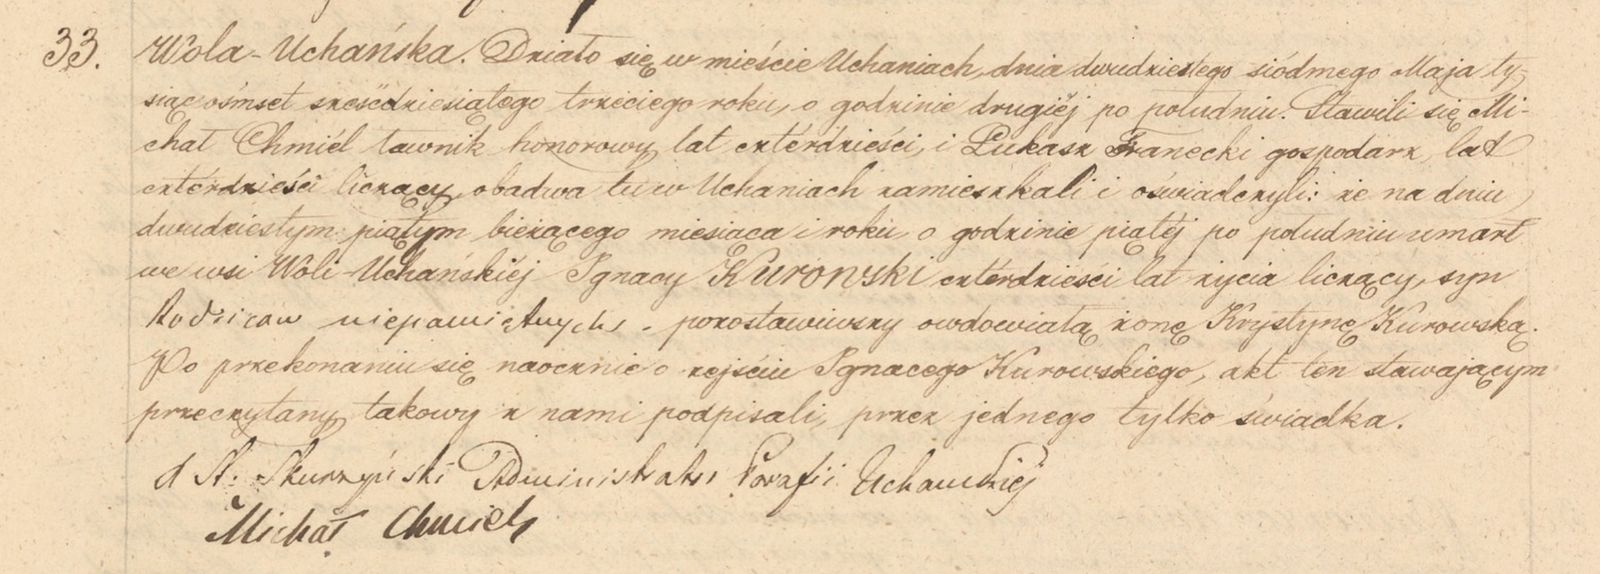 33. Wola-Uchańska. Działo się w mieście Uchaniach, dnia dwudziestego siódmego Maja ty-
siąc ośmset sześćdziesiątego trzeciego roku, o godzinie drugiéj po południu. Stawili się Mi-
chał Chmiél ławnik honorowy lat czterdzieści, i Łukasz Franecki gospodarz, lat
czterdzieści liczący, obadwa tu w Uchaniach zamieszkali i oświadczyli: że na dniu
dwudziestym piątym bieżącego miesiąca i roku, o godzinie piątéj po południu umarł
we wsi Woli-Uchańskiéj Ignacy Kurowski czterdzieści lat życia liczący, syn
Rodziców niepamiętnych, - pozostawiwszy owdowiałą żonę Krystynę Kurowską.
Po przekonaniu się naocznie o zejściu Ignacego Kurowskiego, akt ten stawającym
przeczytany, takowy z nami podpisali, przez jednego tylko świadka.
St: Skurzyński Administrator Parafii Uchańskiej
Michał Chmiel